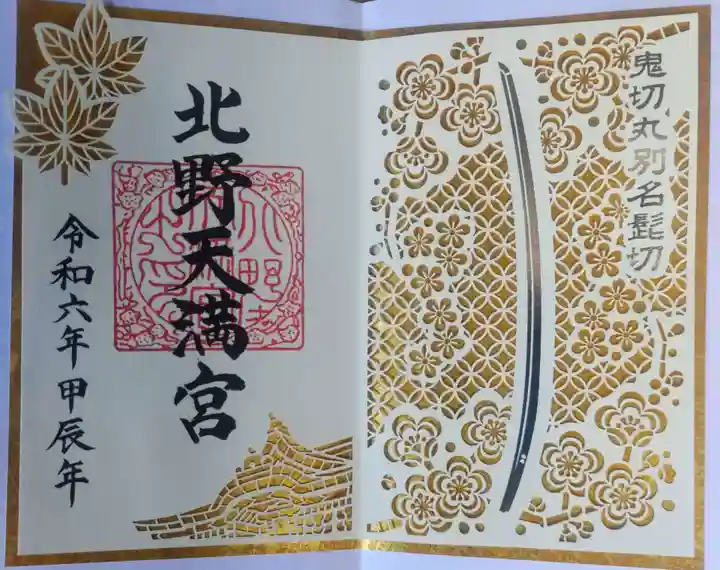 鬼切丸別名髭切
北野天満宮
令和六年甲辰年